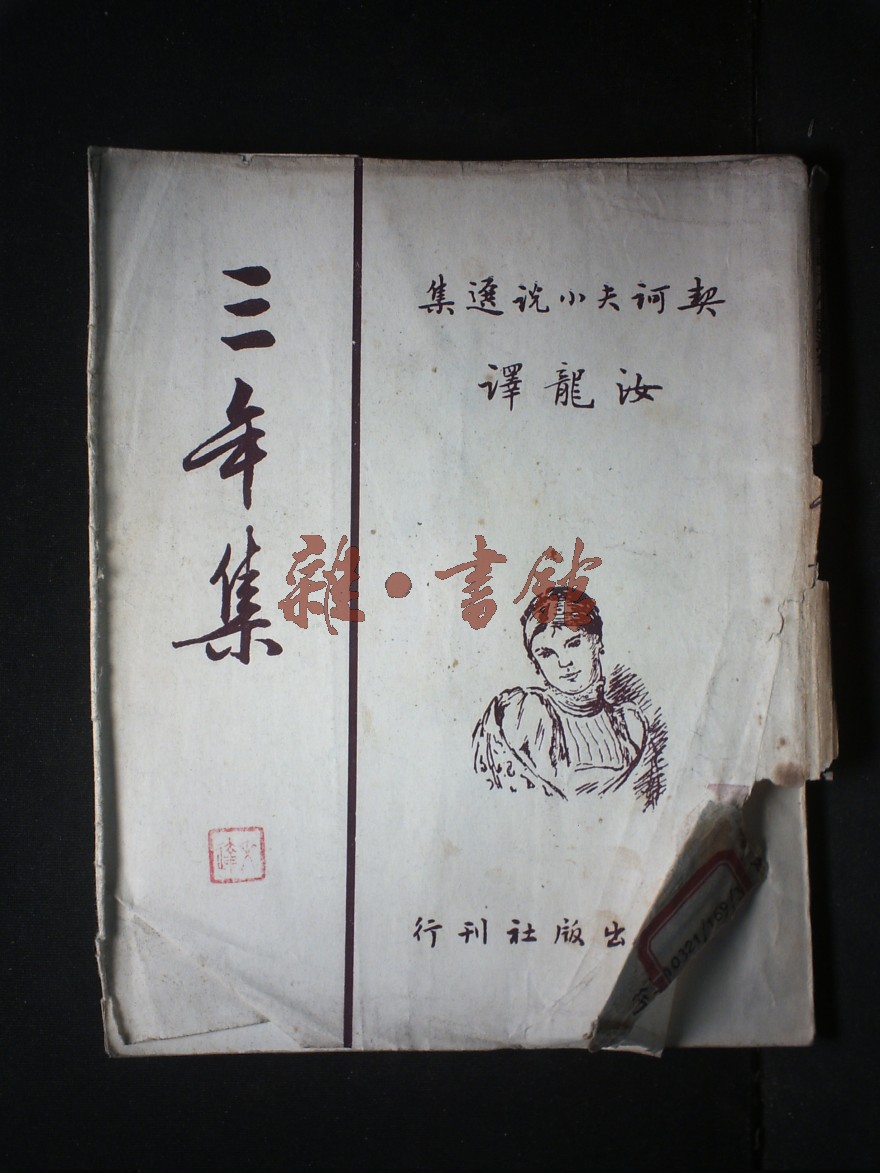 三年集
契訶夫小说選集
汝龍譯
雜·書館
出版社刊行